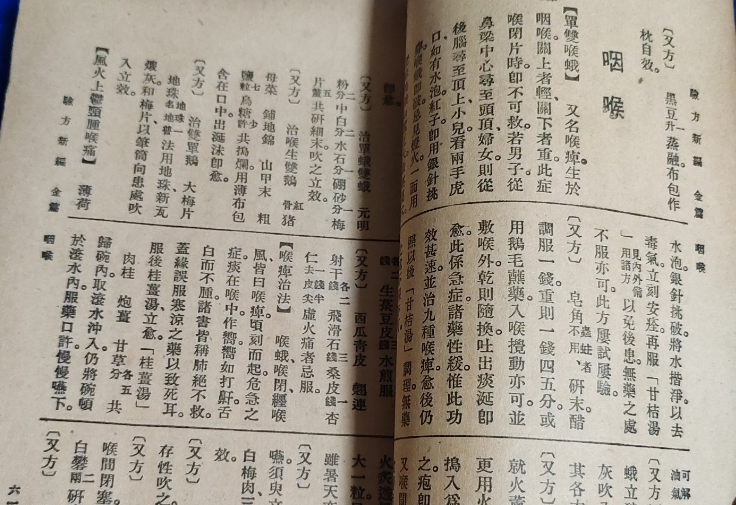 〔又方〕 黑豆一升蒸融布包作
枕自效。
咽喉
【單雙喉蛾】 又名喉痺生於
咽喉。關上者輕關下者重此症
喉閉片時卽不可救若男子從
鼻梁中心尋至頭頂婦女則從
後腦尋至頂上小兒看兩手虎
口如有水泡紅子卽用銀針挑
水泡銀針挑破將水揩淨以去
毒氣立刻安痊再服「甘桔湯
」見內外備用諸方以免後患無藥之處
不服亦可此方屢試屢驗。
〔又方〕 皂角蟲蛀者不用、研末醋
調服一錢重則一錢四五分或
用鵝毛蘸藥入喉攪動亦可並
敷喉外乾則隨換吐出痰涎卽
愈此係急症諸藥性緩惟此功
效甚速並治九種喉痺愈後仍
照以後「甘桔湯」調理無藥
可解
油氣
〔又方
蛾立
灰吹
其各
〔又方〕
就火薰
更用火
搗入爲
之疱卽
又喉間
驗方新編 金篇 咽喉
〔又方〕 治單蛾雙蛾 元明
粉二分中白二分水石一分硼砂一分梅
片五釐共研細末吹之立效。
〔又方〕 治喉生雙鵝 紅骨猪
母菜 鋪地錦 山甲末 粗
鹽七粒烏糖少許共搗爛用薄布包
含在口中出涎沫卽愈。
〔又方〕 治雙單鵝 大梅片
地珠一地珠名地普法用地珠新瓦
煅灰和梅片以筆筒向患處吹
入立效。
【風火上鬱頸腫喉痛】 薄荷
〔又方〕 西瓜靑皮 翹連
射干各二錢飛滑石三錢桑皮一錢杏
仁一錢半去皮尖虛火痛者忌服。
【喉痺治法】 喉蛾喉閉纏喉
風皆曰喉痺頃刻而起危急之
症痰在喉中作嚮嚮如打鼾舌
白而不腫諸書皆稱肺絕不救。
蓋緣誤服寒涼之藥以致死耳。
服後桂薑湯立愈「桂薑湯」
肉桂 炮薑 甘草各五分 共
歸碗內取滾水沖入仍將碗頓
於滾水內服藥口許慢慢嚥下。
火炎
大一粒
雖暑天
〔又方〕
嚥須臾
白梅肉三
效。
〔又方〕
存性吹之
〔又方〕
喉間閉塞
白礬二兩研
〔又方〕
驗方新編 金篇 咽喉 六一